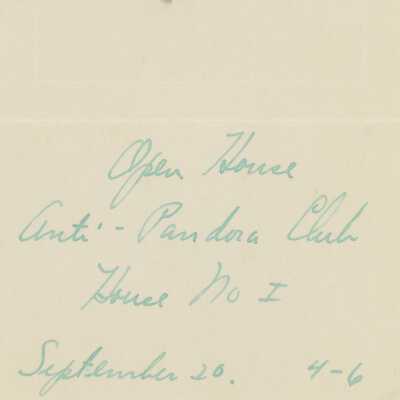 Open House
Anti - Pandora Club
House No I
September 20. 4-6